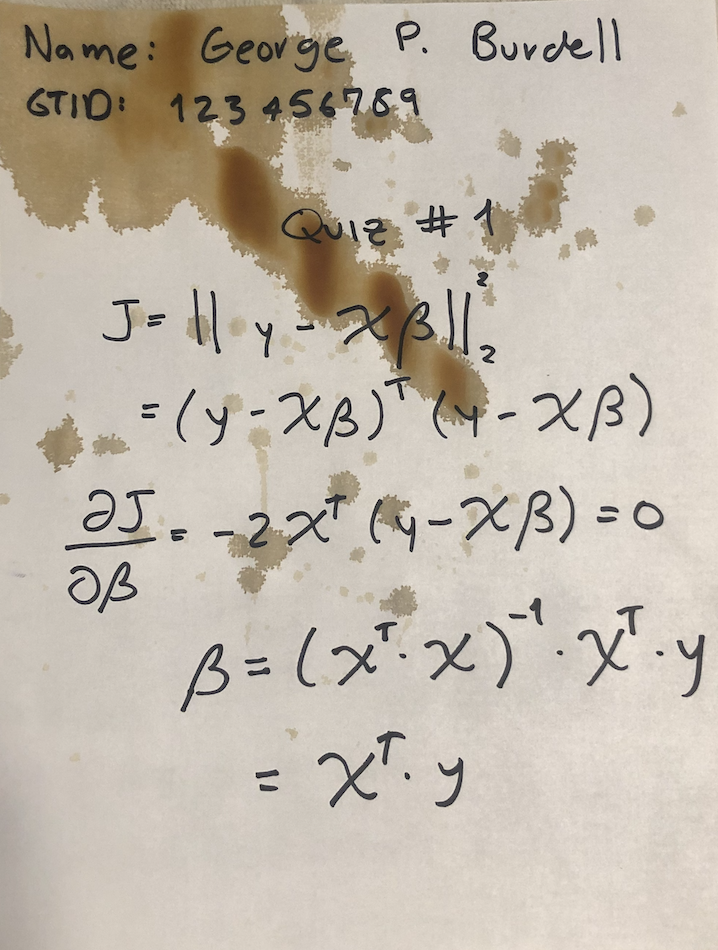 Name: George P. Burdell
GTID: 123456789
Quiz #1
J = || y - Xβ ||₂²
= (y - Xβ)ᵀ (y - Xβ)
∂J/∂β = -2Xᵀ (y - Xβ) = 0
β = (Xᵀ · X)⁻¹ · Xᵀ · y
= Xᵀ · y